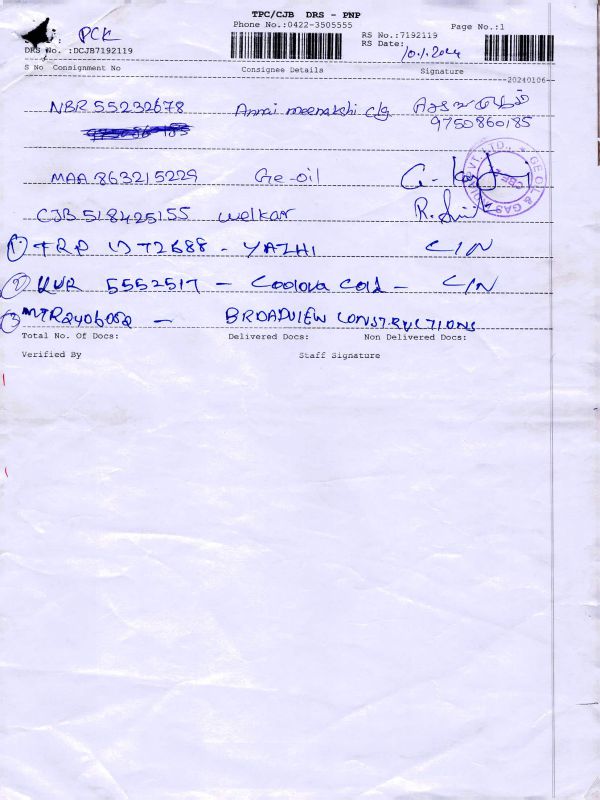 TPC/CJB DRS - PNP
Phone No.:0422-3505555 Page No.:1
: PCK RS No.:7192119
DRS No. :DCJB7192119 RS Date: 10.1.2024
S No Consignment No Consignee Details Signature
20240106
NBR 55232678 Annai meenakshi c/g
9750860185
MAA 863215229 Ge-oil
CJB 518425155 welkar
① TRP 1772688 - YAZHI C/N
② 5552517 - Cold - C/N
③ MTR2406052 - BROADVIEW CONSTRUCTIONS
Total No. Of Docs: Delivered Docs: Non Delivered Docs:
Verified By Staff Signature